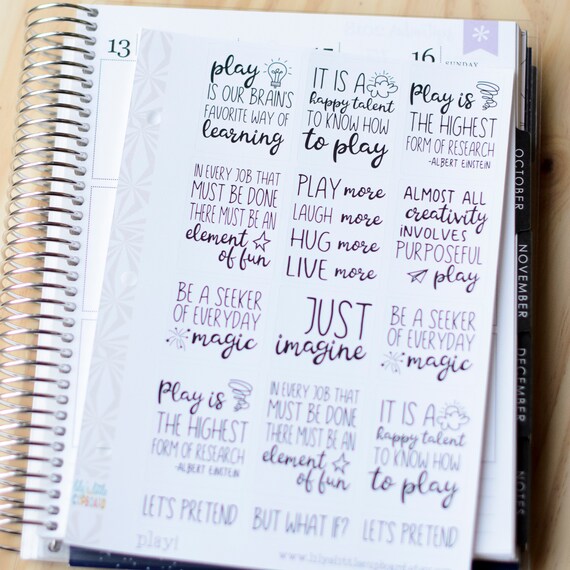 13
16
SUNDAY
play
IS OUR BRAIN'S
FAVORITE WAY OF
learning
IT IS A
happy talent
TO KNOW HOW
to play
Play is
THE HIGHEST
FORM OF RESEARCH
-ALBERT EINSTEIN
IN EVERY JOB THAT
MUST BE DONE
THERE MUST BE AN
element
of fun
PLAY more
LAUGH more
HUG more
LIVE more
ALMOST ALL
creativity
INVOLVES
PURPOSEFUL
play
BE A SEEKER
OF EVERYDAY
magic
JUST
imagine
BE A SEEKER
OF EVERYDAY
magic
Play is
THE HIGHEST
FORM OF RESEARCH
-ALBERT EINSTEIN
IN EVERY JOB THAT
MUST BE DONE
THERE MUST BE AN
element
of fun
IT IS A
happy talent
TO KNOW HOW
to play
LET'S PRETEND
BUT WHAT IF?
LET'S PRETEND
play!
OCTOBER
NOVEMBER
DECEMBER
NOTES